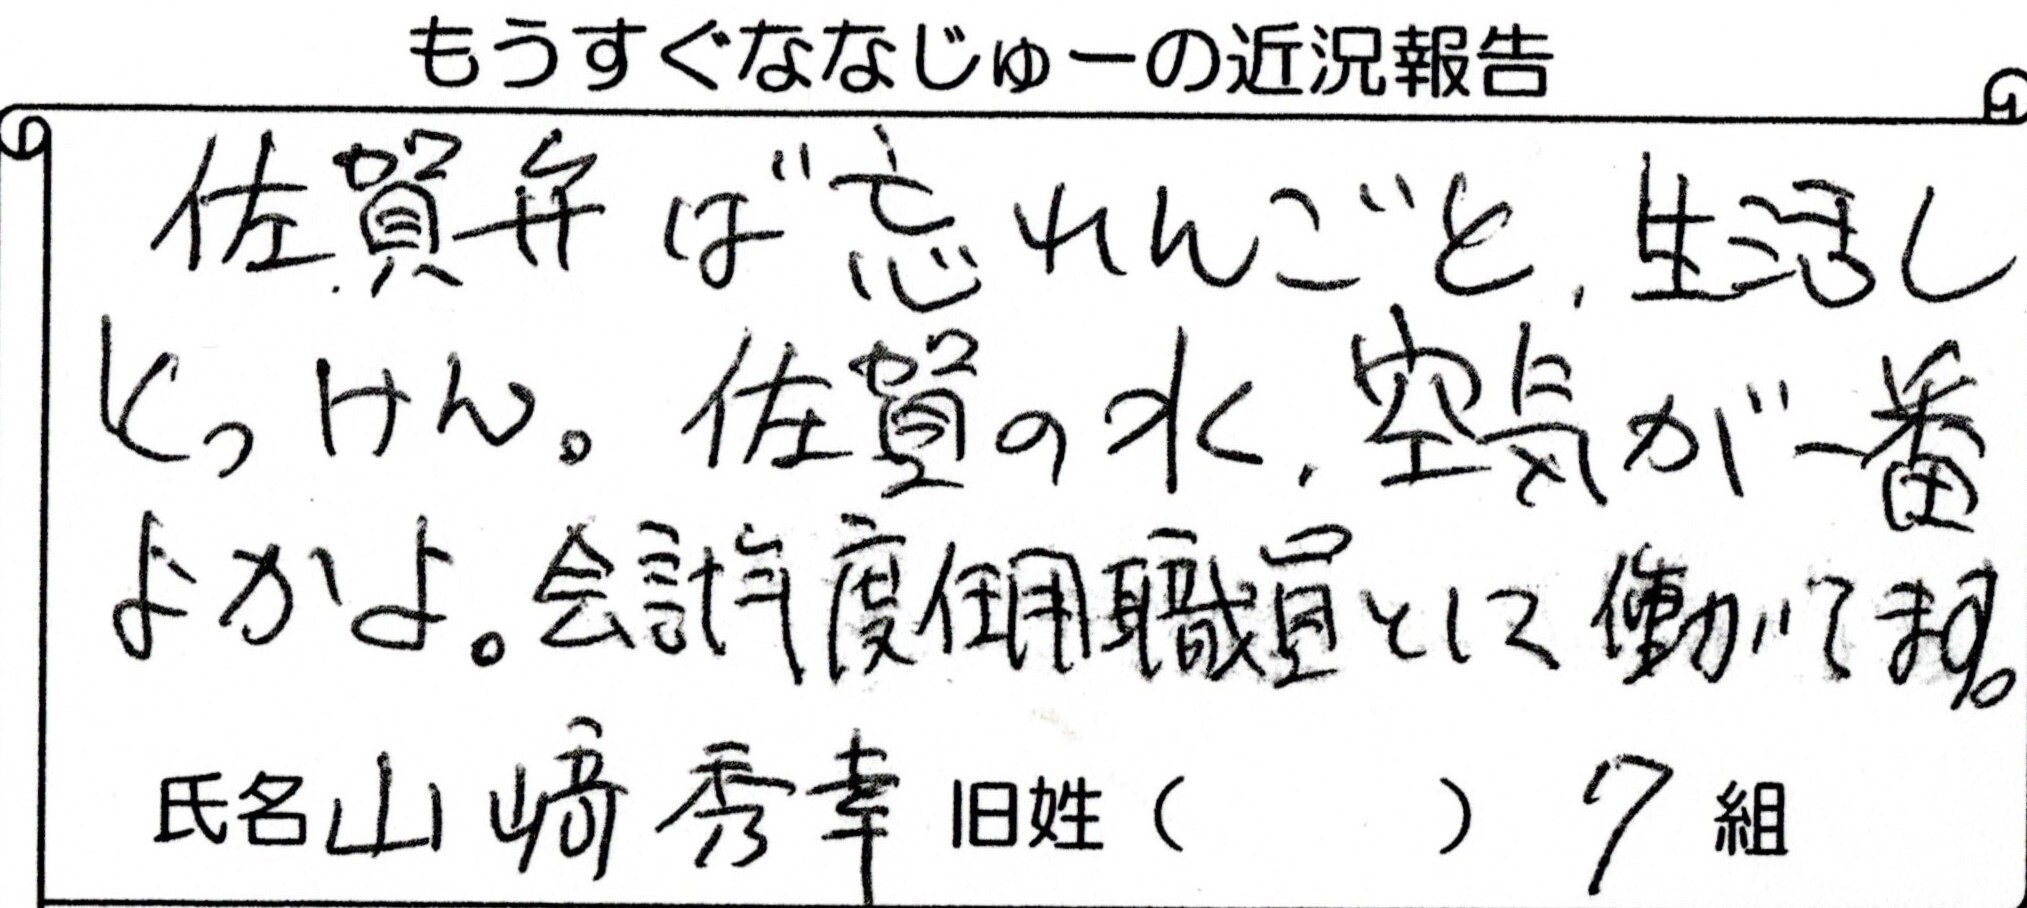 もうすぐななじゅーの近況報告
佐賀弁ば忘れんごと、生活し
とっけん。佐賀の水、空気が一番
よかよ。会計年度任用職員として働いてます。
氏名 山﨑 秀幸 旧姓（　　　） 7 組